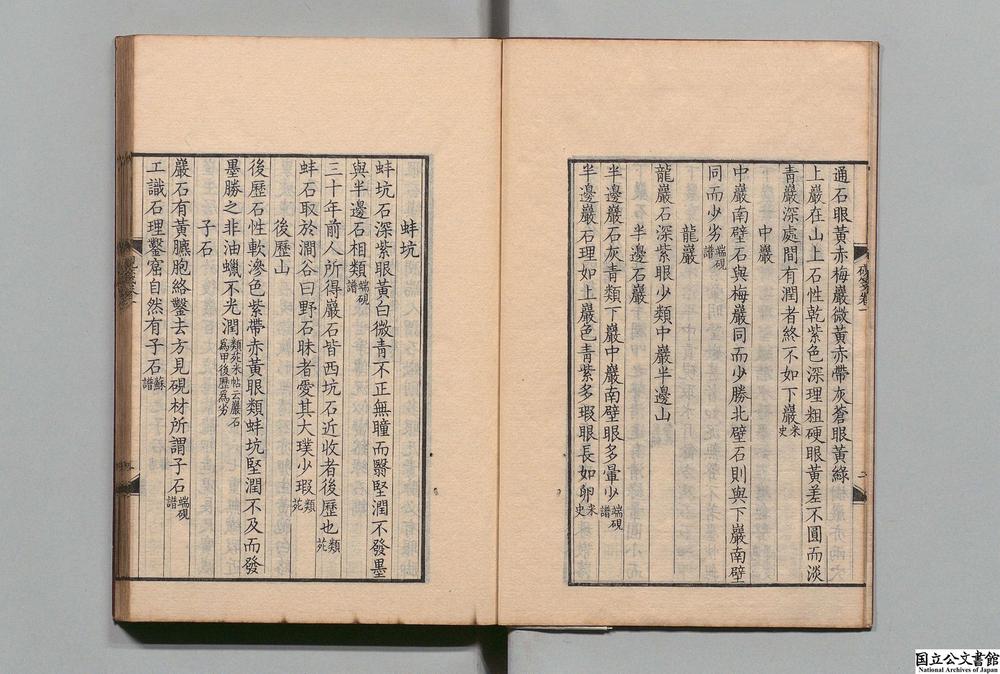 通石眼黃赤梅巖微黃赤帶灰蒼眼黃綠
上巖在山上石性乾紫色深理粗硬眼黃差不圓而淡
青巖深處間有潤者終不如下巖米史
中巖
中巖南壁石與梅巖同而少勝北壁石則與下巖南壁
同而少劣端硯譜
龍巖
龍巖石深紫眼少類中巖半邊山
半邊石巖
半邊巖石灰青類下巖中巖南壁眼多暈少端硯譜
半邊巖石理如上巖色青紫多瑕眼長如卵米史
硯箋卷一
二
蚌坑
蚌坑石深紫眼黃白微青不正無瞳而翳堅潤不發墨
與半邊石相類端硯譜
三十年前人所得巖石皆西坑石近收者後歷也類苑
蚌石取於澗谷曰野石昧者愛其大璞少瑕類苑
後歷山
後歷石性軟滲色紫帶赤黃眼類蚌坑堅潤不及而發
墨勝之非油蠟不光潤類苑米帖云巖石為甲後歷為劣
子石
巖石有黃臕胞絡鑿去方見硯材所謂子石端硯譜
工識石理鑿窟自然有子石蘇譜
国立公文書館
National Archives of Japan